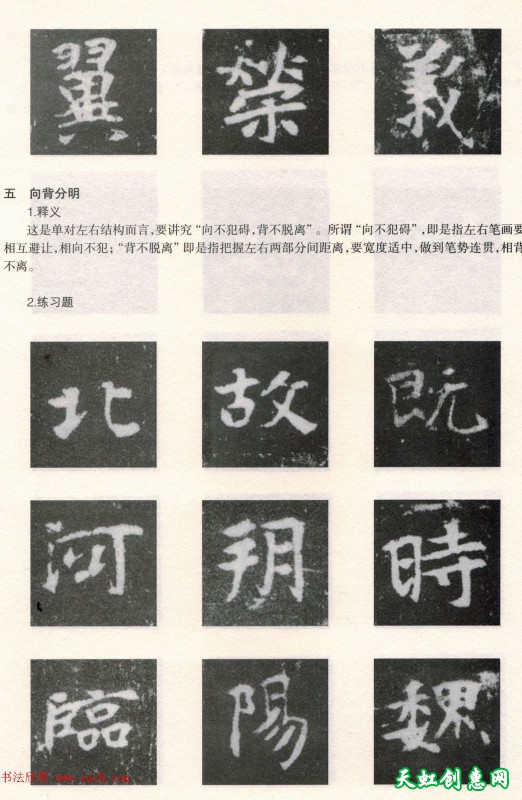 翼 榮 義
五 向背分明
1.释义
这是单对左右结构而言,要讲究“向不犯碍,背不脱离”。所谓“向不犯碍”,即是指左右笔画要
相互避让,相向不犯;“背不脱离”即是指把握左右两部分间距离,要宽度适中,做到笔势连贯,相背
不离。
2.练习题
北 故 既
河 玥 時
臨 陽 魏
天虹创惠网